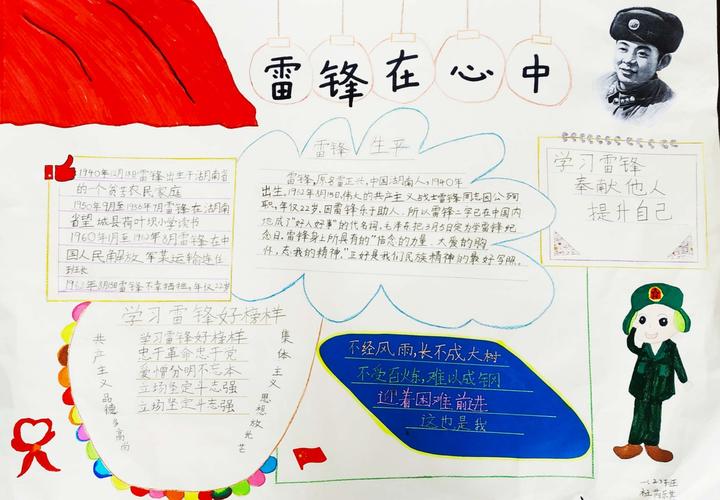 雷锋在心中
雷锋 生平
雷锋,原名雷正兴,中国湖南人,1940年
出生,1962年8月15日,伟大的共产主义战士雷锋同志因公殉
职,年仅22岁,因雷锋乐于助人,所以雷锋二字已在中国内
地成了"好人好事"的代名词,毛泽东把3月5日定为学雷锋纪
念日,雷锋身上所具有的"信念的力量、大爱的胸
怀,忘我的精神"正好是我们民族精神的最好写照。
学习雷锋
奉献他人
提升自己
1940年12月18日雷锋出生于湖南省
的一个贫苦农民家庭
1950年9月至1956年7月雷锋在湖南
省望城县荷叶坝小学读书
1960年1月至1962年8月雷锋在中
国人民解放军某运输连任
班长
1962年8月15日雷锋不幸牺牲,年仅22岁
学习雷锋好榜样
学习雷锋好榜样
忠于革命忠于党
爱憎分明不忘本
立场坚定斗志强
立场坚定斗志强
共产主义品德多高尚
集体主义思想放光芒
不经风雨,长不成大树
不受百炼,难以成钢
迎着困难前进
这也是我